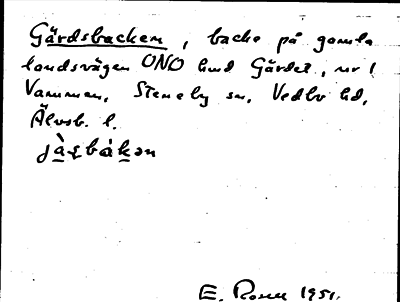 Gärdsbacken, backe på gamla
landsvägen ONO hmd Gärdet, nr 1
Vammen, Steneby sn, Vedbo hd,
Älvsb. l.
E. Rosell 1951.